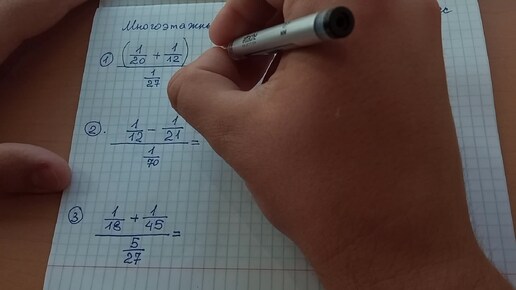 Многоэтажн
① (1/20 + 1/12) / (1/27)
②. (1/12 - 1/21) / (1/70) =
③ (1/18 + 1/45) / (5/27) =